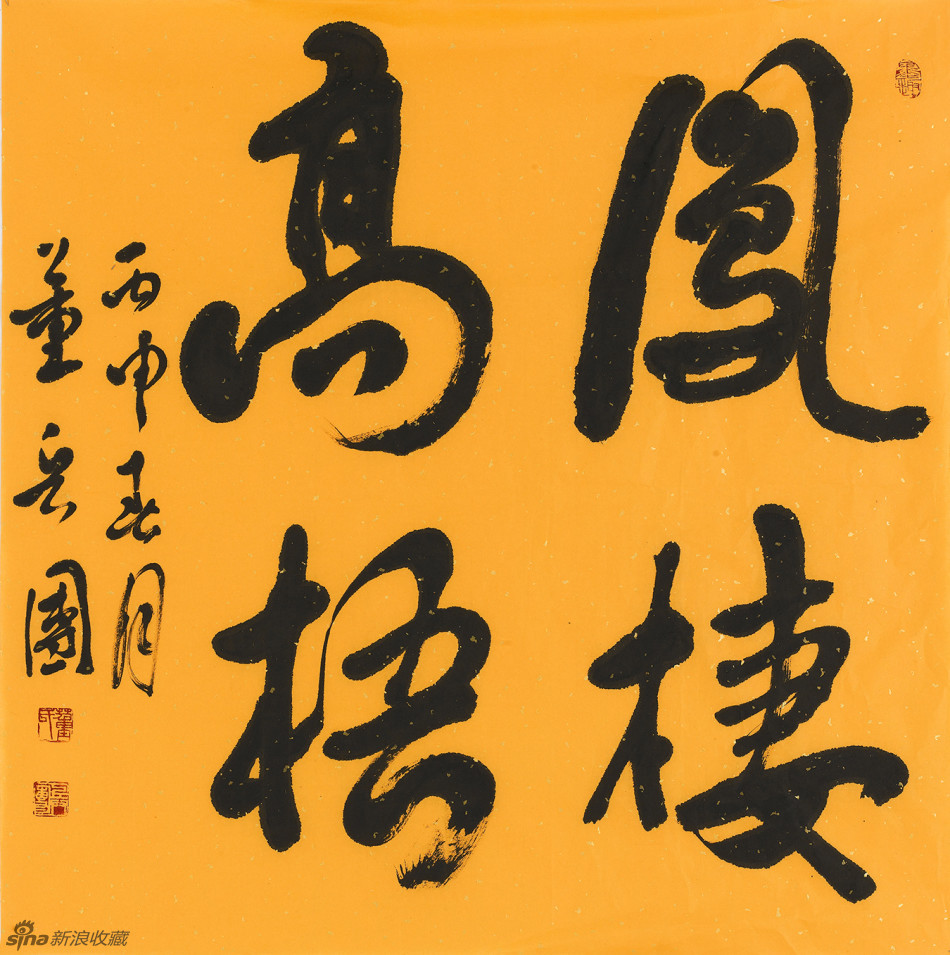 鳳棲
高梧
丙申春月
董團
sina新浪收藏